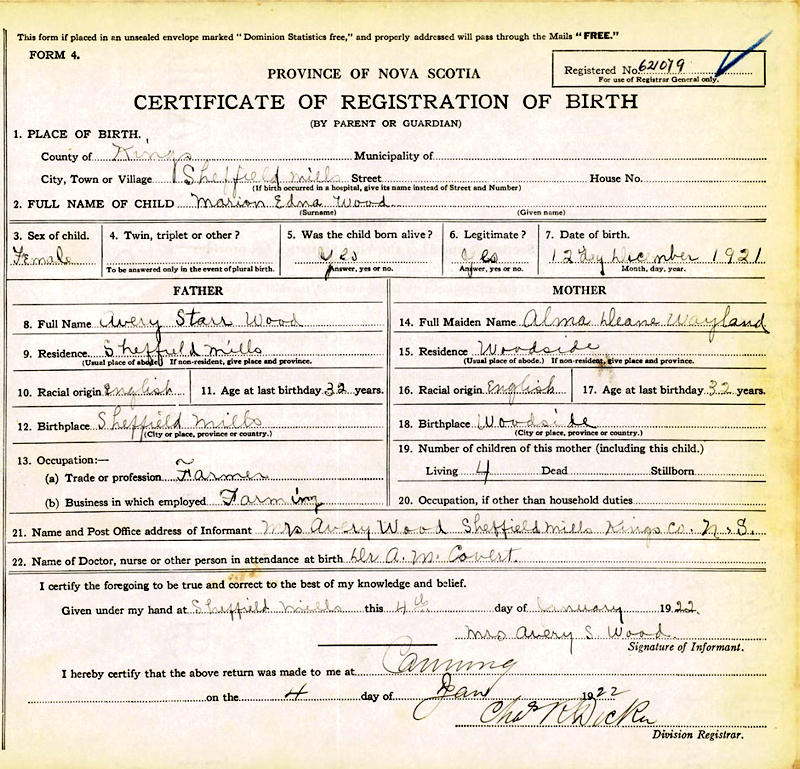 This form if placed in an unsealed envelope marked "Dominion Statistics free," and properly addressed will pass through the Mails "FREE."
FORM 4.
Registered No. 621079
For use of Registrar General only.
PROVINCE OF NOVA SCOTIA
CERTIFICATE OF REGISTRATION OF BIRTH
(BY PARENT OR GUARDIAN)
1. PLACE OF BIRTH.
County of Kings Municipality of
City, Town or Village Sheffield Mills Street House No.
(If birth occurred in a hospital, give its name instead of Street and Number)
2. FULL NAME OF CHILD Marion Edna Wood
(Surname) (Given name)
3. Sex of child. 4. Twin, triplet or other? 5. Was the child born alive? 6. Legitimate? 7. Date of birth.
Female Yes Yes 12 day December 1921
To be answered only in the event of plural birth. Answer, yes or no. Answer, yes or no. Month, day, year.
FATHER MOTHER
8. Full Name Avery Starr Wood 14. Full Maiden Name Alma Deane Wayland
9. Residence Sheffield Mills 15. Residence Woodside
(Usual place of abode. If non-resident, give place and province. (Usual place of abode.) If non-resident, give place and province.
10. Racial origin English 11. Age at last birthday 32 years. 16. Racial origin English 17. Age at last birthday 32 years.
12. Birthplace Sheffield Mills 18. Birthplace Woodside
(City or place, province or country.) (City or place, province or country.)
13. Occupation:— 19. Number of children of this mother (including this child.)
(a) Trade or profession Farmer Living 4 Dead Stillborn
(b) Business in which employed Farming 20. Occupation, if other than household duties
21. Name and Post Office address of Informant Mrs Avery Wood Sheffield Mills Kings Co. N.S.
22. Name of Doctor, nurse or other person in attendance at birth Dr A. M. Covert.
I certify the foregoing to be true and correct to the best of my knowledge and belief.
Given under my hand at Sheffield Mills this 4th day of January 1922
Mrs Avery S. Wood
Signature of Informant.
I hereby certify that the above return was made to me at Canning
on the 4 day of Jan 1922
Chas R Dicker
Division Registrar.